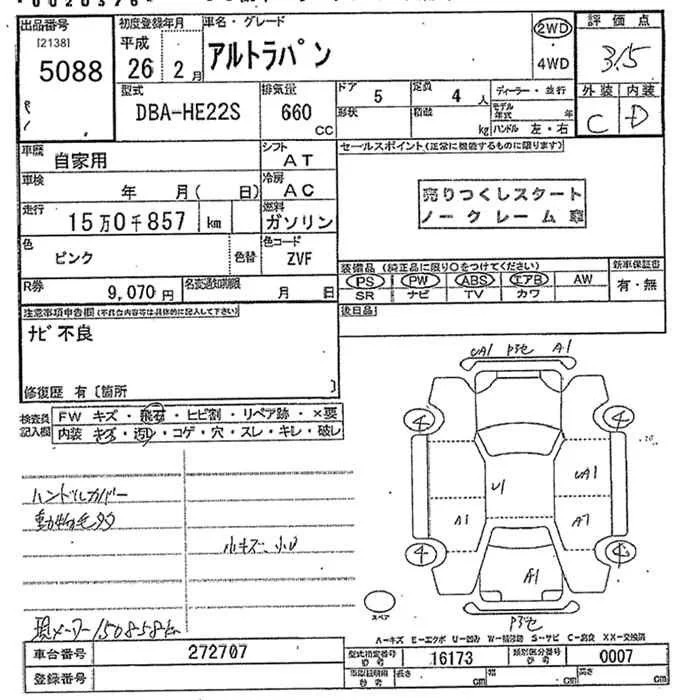 出品番号 初度登録年月 車名・グレード 評価点
[2138] 平成 アルトラパン 2WD 3.5
5088 26 2月 4WD
外装 内装
型式 排気量 ドア 5 定員 4人 ディーラー・並行
DBA-HE22S 660 CC 形状 積載 kg モデル年式 年 C D
ハンドル 左・右
車歴 自家用 シフト AT セールスポイント(正常に機能するものに限ります)
車検 年 月( 日) 冷房 AC 売りつくしスタート
走行 15万0千857 km 燃料 ガソリン ノークレーム車
色 ピンク 色替 色コード ZVF
装備品(純正品に限り○をつけてください) 新車保証書
R券 9,070円 名変通知期限 月 日 PS PW ABS エアB AW 有・無
SR ナビ TV カワ
注意事項申告欄(不具合内容等は具体的に記入して下さい) 後日品
ナビ不良
修復歴 有〔箇所
UA1 A1
検査員記入欄 FW キズ・飛石・ヒビ割・リペア跡・×要
内装 キズ・汚れ・コゲ・穴・スレ・キレ・破レ
4 4
ハンドルカバー U1 UA1
動物毛 A1 A7
小キズ、小U 4 4
A1
スペア
現メーター150858km
A-キズ E-エクボ U-凹み W-補修跡 S-サビ C-腐食 XX-交換済
車台番号 272707 型式指定番号 参考 16173 類別区分番号 参考 0007
登録番号 長さ cm 幅 cm 高さ cm